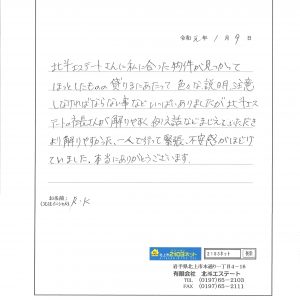 令和 元 年 1 月 9 日
北斗エステートさんに私に合った物件が見つかって
ほっとしたものの 貸りるにあたって 色々な説明、注意
しなければならない事など いっぱいありましたが 北斗エス
テートの社長さんが 解りやすく 例え話などまじえていただき
より解りやすかった。一人で行って緊張、不安感がほどけ
ていました。本当にありがとうございます。
お名前:
(又はイニシャル) R・K
北上市2103ネット 2103ネット 検索
岩手県北上市本通り一丁目4-16
有限会社 北斗エステート
TEL (0197)65-2103
FAX (0197)65-2111